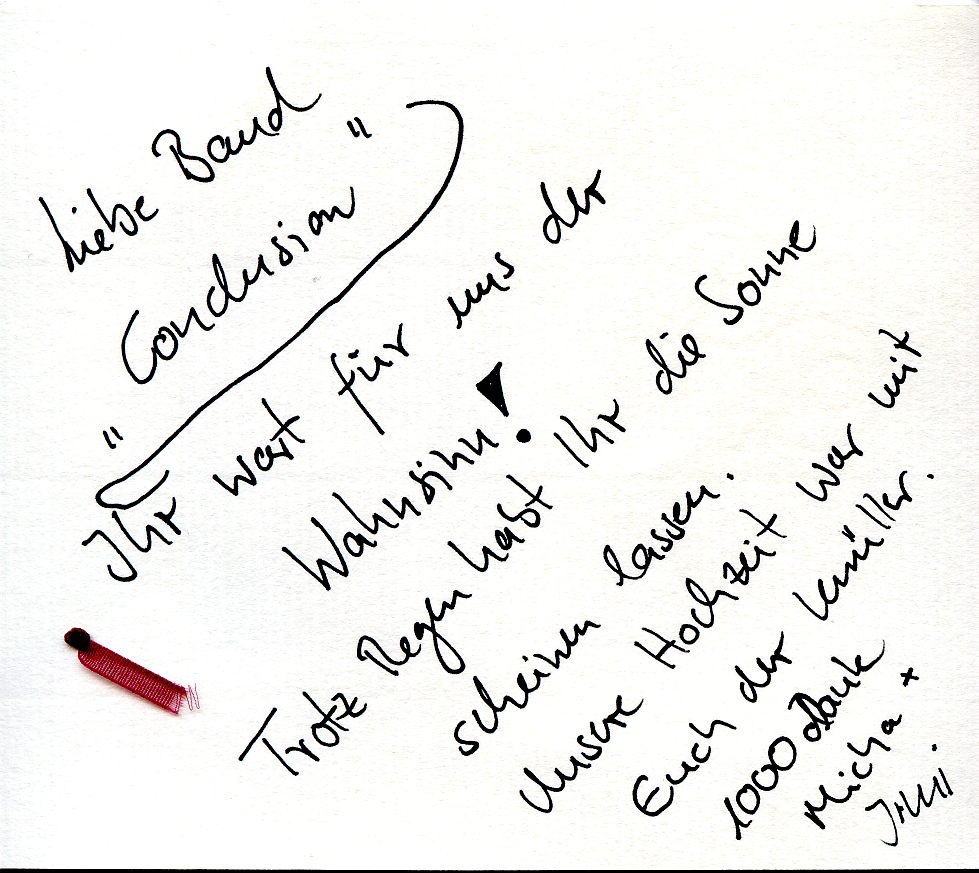 Liebe Band
"Conclusion"
Ihr wart für uns der
Wahnsinn!
Trotz Regen habt Ihr die Sonne
scheinen lassen.
Unsere Hochzeit war mit
Euch der Knüller.
1000 Dank
Micha +
Irmi.